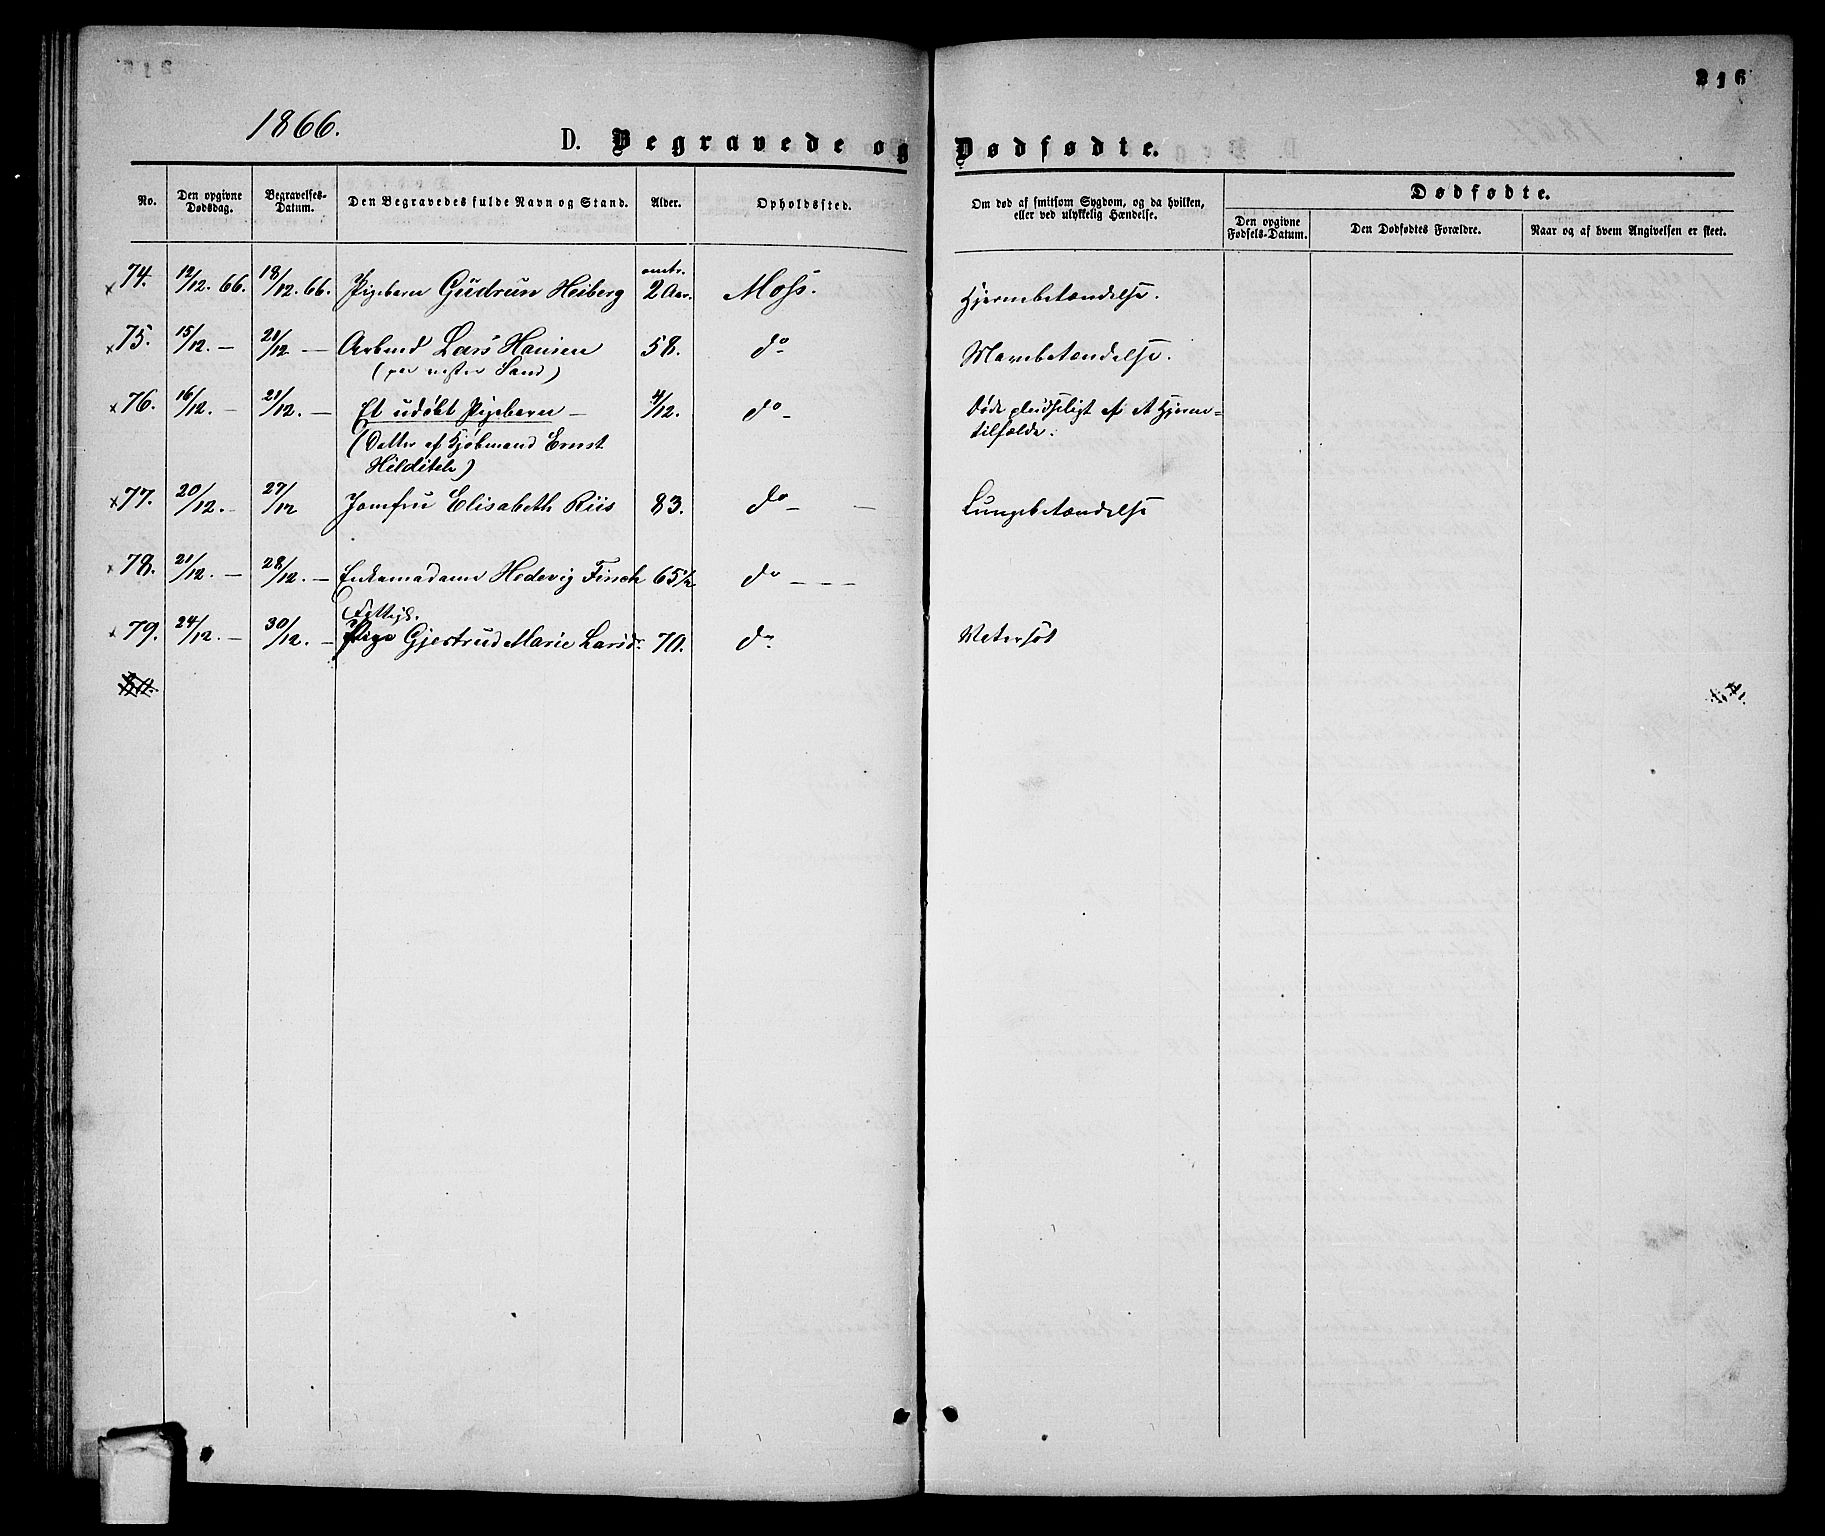 216
1866.
D. Begravede og Dødfødte.
No. Den opgivne Dødsdag. Begravelses-Datum. Den Begravedes fulde Navn og Stand. Alder. Opholdssted. Om død af smitsom Sygdom, og da hvilken, eller ved ulykkelig Hændelse. Dødfødte.
Den opgivne Fødsels-Datum. Den Dødfødtes Forældre. Naar og af hvem Angivelsen er skeet.
x 74. 12/12. 66. 18/12. 66. Pigebarn Gudrun Heiberg omtr. 2 Aar. Moss. Hjernebetændelse.
x 75. 15/12. — 21/12 — Arbmd Lars Hansen 58. do Mavebetændelse.
( Sand)
x 76. 16/12. — 21/12. — Et udøbt Pigebarn — 4/12. do — Døde pludseligt af et Hjerne=
(Datter af Kjøbmand Ernst tilfælde.
Hilditch)
x 77. 20/12. — 27/12 Jomfru Elisabeth Riis 83. do — — Lungebetændelse
x 78. 21/12. — 28/12. — Enkemadame Hedevig Finck 65 1/2 do — — —
Fattigl.
x 79. 24/12. — 30/12. — Pige Gjertrud Marie Larsdr. 70. do Vatersot